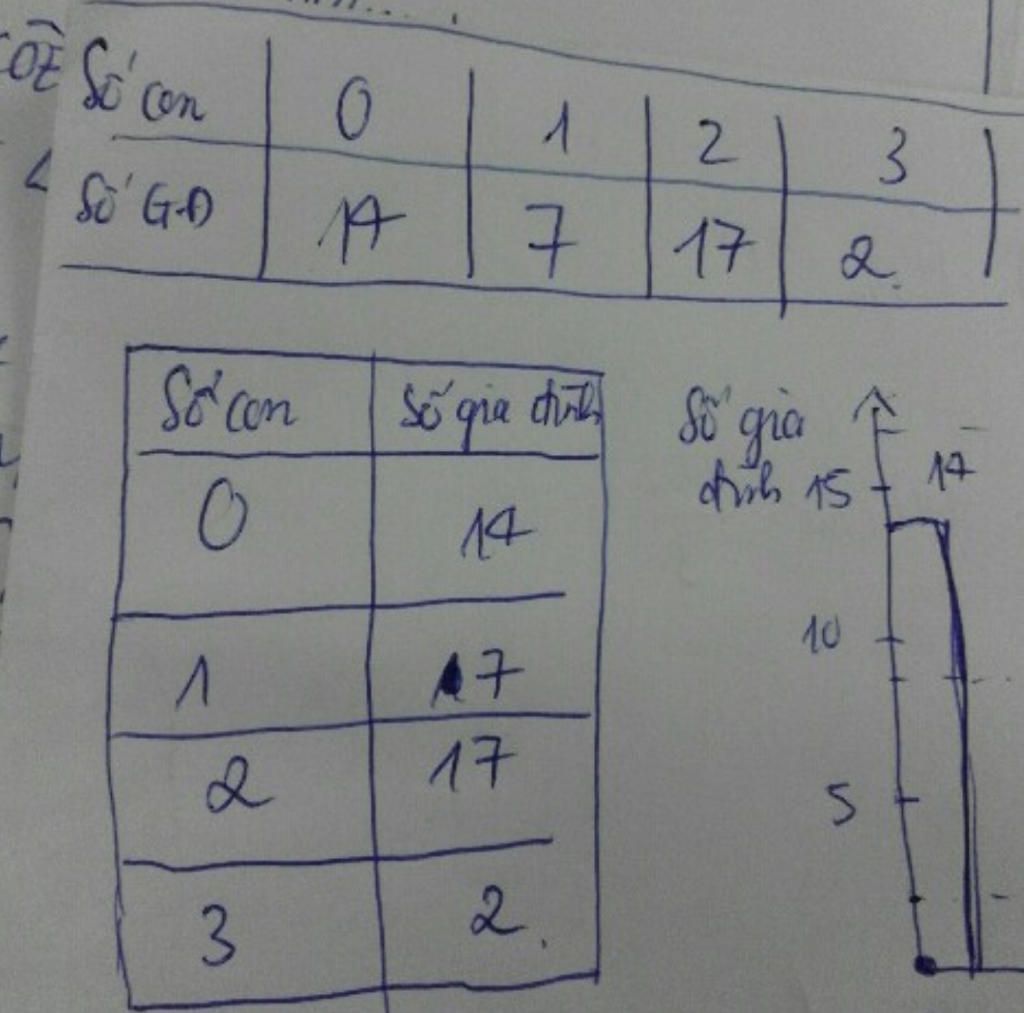 Số con 0 1 2 3
Số GĐ 14 7 17 2
Số con Số gia đình
0 14
1 7
2 17
3 2
Số gia
đình
14
15
10
5